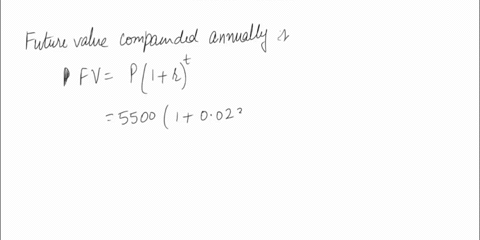 Future value compounded annually is
FV = P(1+r)^t
= 5500 (1 + 0.02